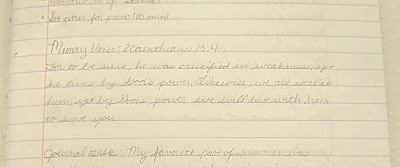 Introduction of
• Set timer for piano (20 min)
Memory Verse: 2 Corinthians 13:4
For to be sure, he was crucified in weakness, yet
he lives by God's power. Likewise, we are weak in
him, yet by God's power we will live with him
to serve you.
Journal Table: My favorite part of summer was